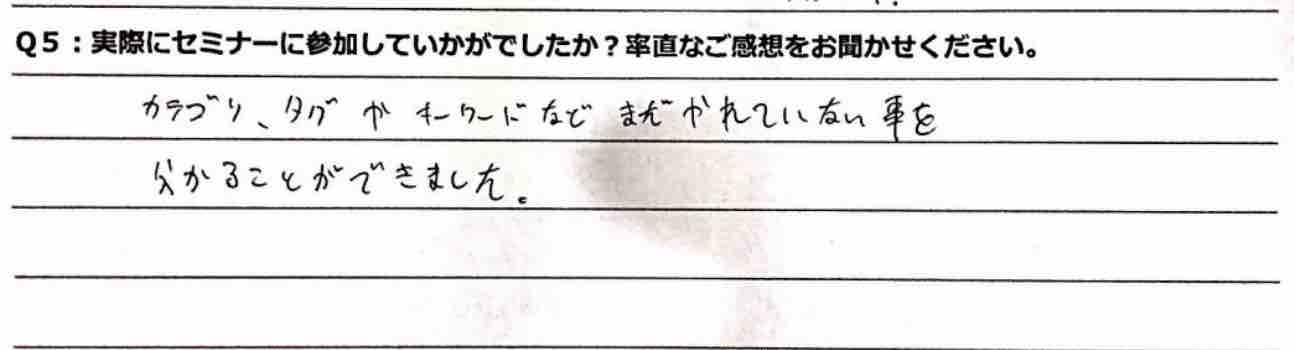 Q5：実際にセミナーに参加していかがでしたか？率直なご感想をお聞かせください。
カテゴリ、タグや キーワードなど まだ やれていない 事を
分かることができました。